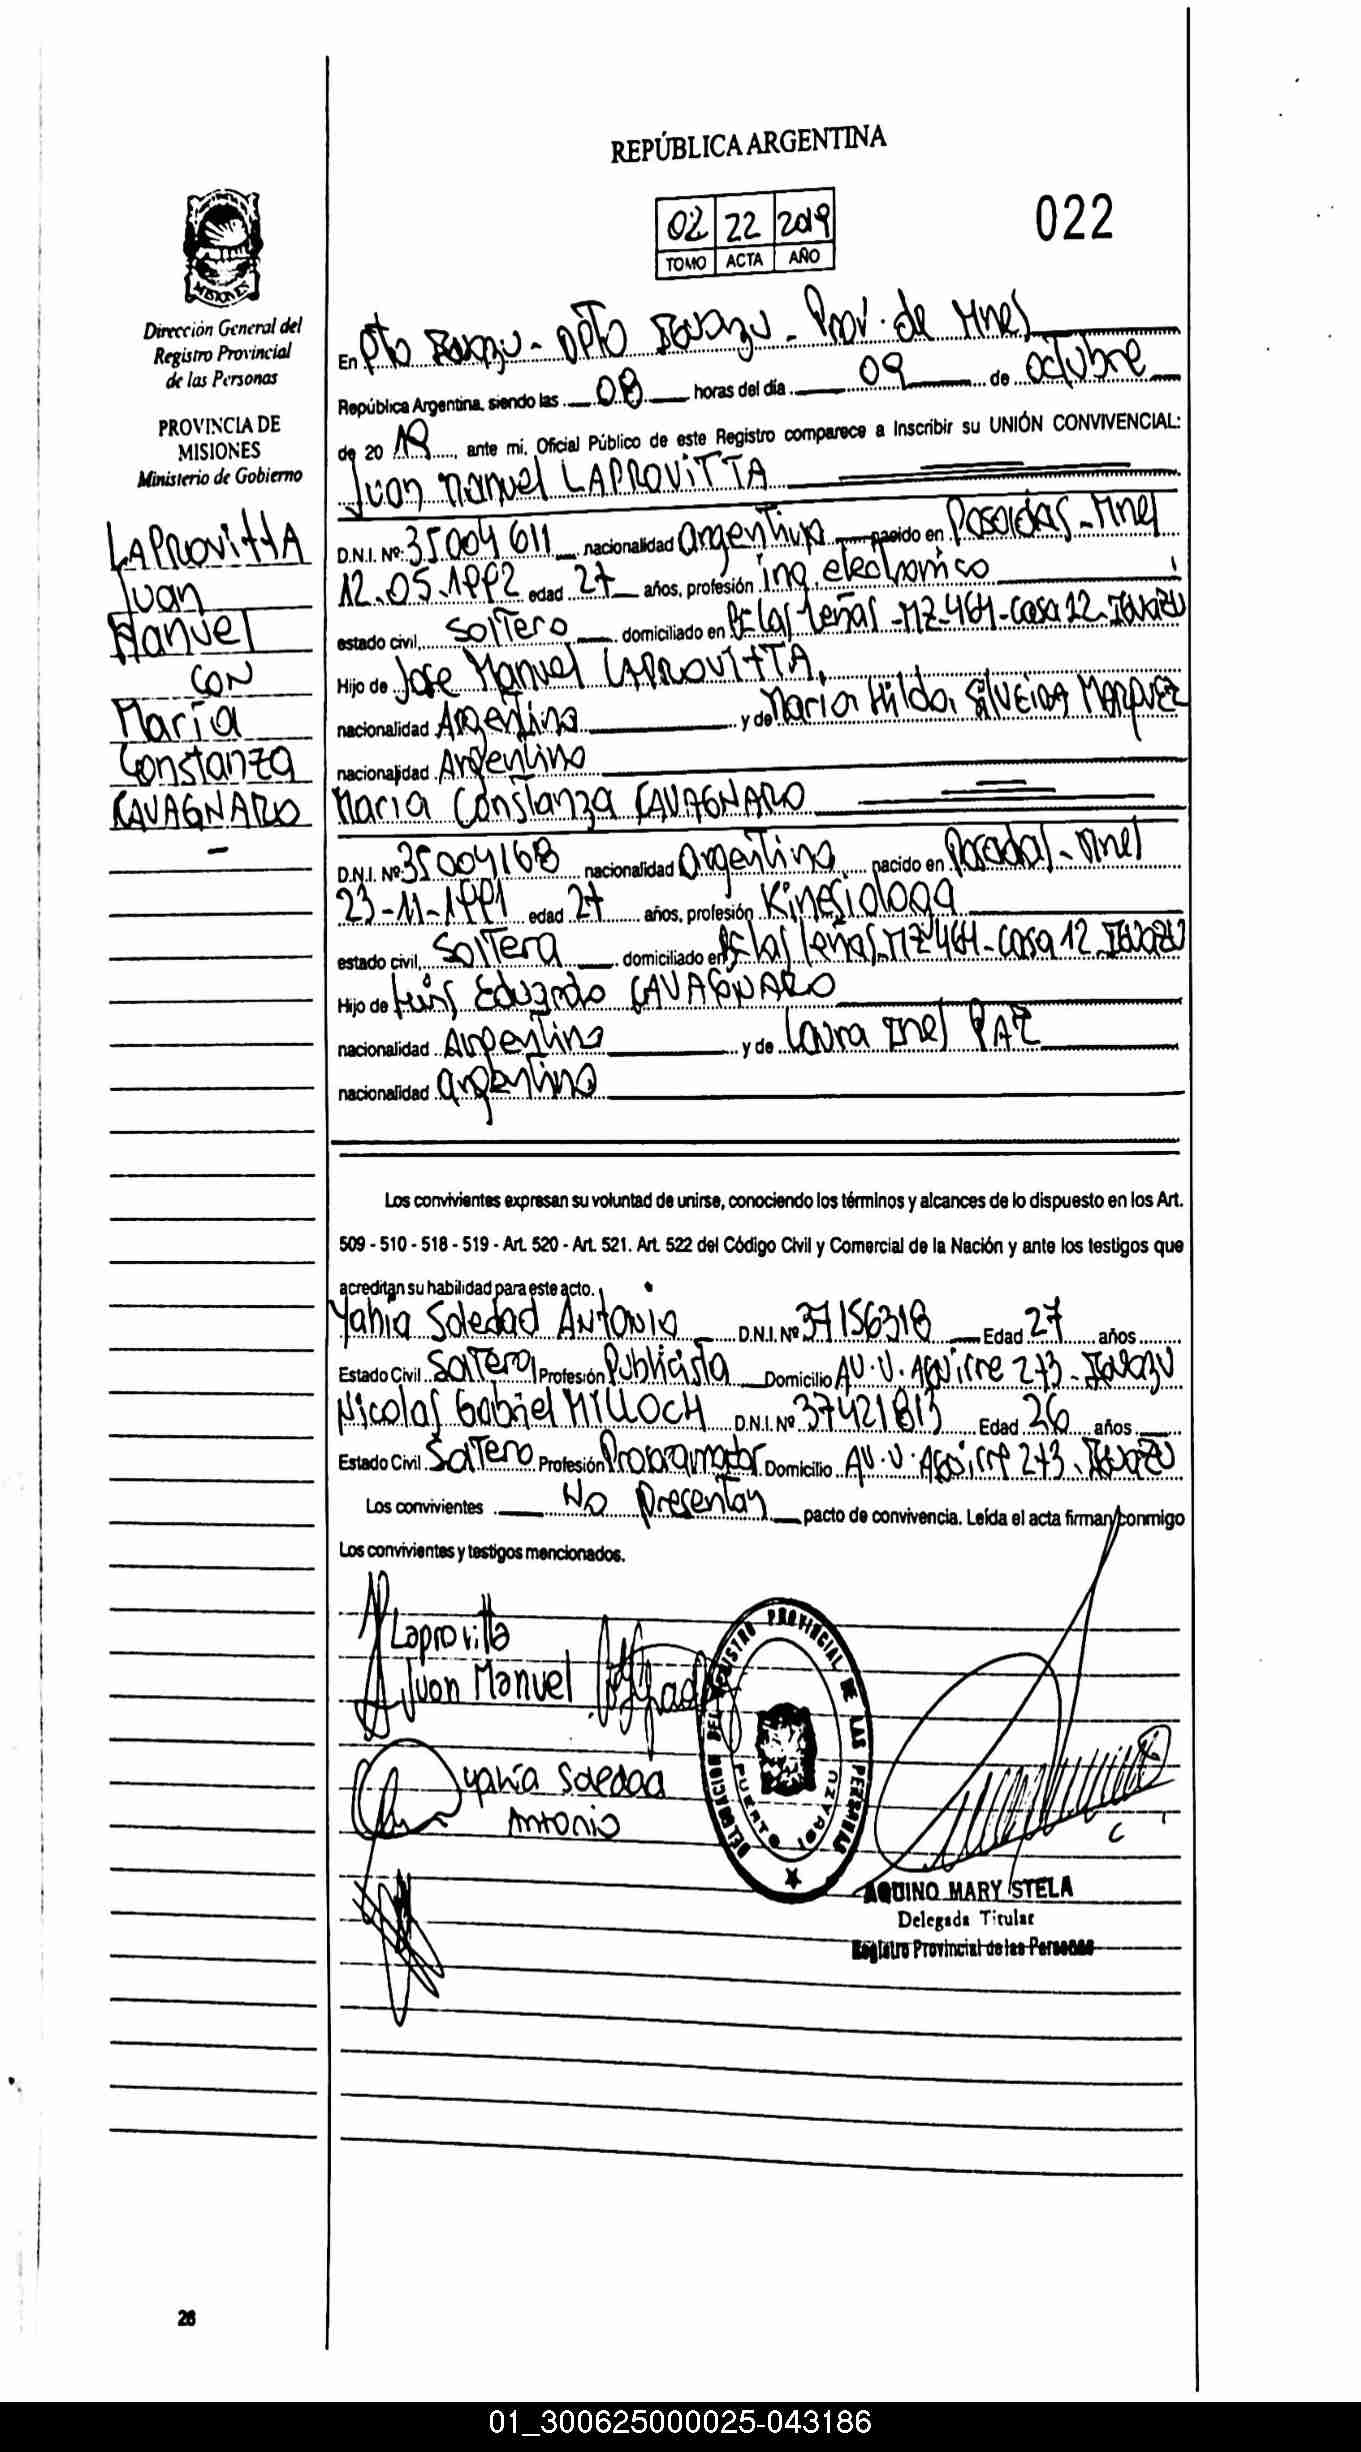 REPÚBLICA ARGENTINA
02 22 2019
TOMO ACTA AÑO
022
MISIONES
Dirección General del
Registro Provincial
de las Personas
PROVINCIA DE
MISIONES
Ministerio de Gobierno
LAPROVITTA
Juan
Manuel
CON
María
Constanza
CAVAGNARO
-
En Pto Iguazu - DPTO Iguazu - Prov. de Mnes
República Argentina, siendo las 08 horas del día 09 de octubre
de 20 19, ante mi, Oficial Público de este Registro comparece a Inscribir su UNIÓN CONVIVENCIAL:
Juan Manuel LAPROVITTA
D.N.I. Nº: 35004611 nacionalidad Argentina nacido en Posadas - Mnes
12.05.1992 edad 27 años, profesión ing. electronico
estado civil, soltero domiciliado en Bº Las Leñas - MZ-464-Casa 12-Iguazu
Hijo de Jose Manuel LAPROVITTA,
nacionalidad Argentina y de Maria Hilda SILVEIRA MARQUEZ
nacionalidad Argentina
Maria Constanza CAVAGNARO
D.N.I. Nº: 35004168 nacionalidad Argentina nacido en Posadas - Mnes
23-11-1991 edad 27 años, profesión Kinesiologa
estado civil, soltera domiciliado en Bº Las Leñas-MZ 464-Casa 12 Iguazu
Hijo de Luis Eduardo CAVAGNARO
nacionalidad Argentina y de Laura Ines PAZ
nacionalidad argentina
Los convivientes expresan su voluntad de unirse, conociendo los términos y alcances de lo dispuesto en los Art.
509 - 510 - 518 - 519 - Art. 520 - Art. 521. Art. 522 del Código Civil y Comercial de la Nación y ante los testigos que
acreditan su habilidad para este acto.
Yahia Soledad Antonio D.N.I. Nº 37156318 Edad 27 años
Estado Civil Soltera Profesión Publicista Domicilio AV. V. Aguirre 273 - Iguazu
Nicolas Gabriel MILLOCH D.N.I. Nº 37421813 Edad 26 años
Estado Civil Soltero Profesión Programador Domicilio AV. V. Aguirre 273 - Iguazu
Los convivientes No Presentan pacto de convivencia. Leída el acta firman conmigo
Los convivientes y testigos mencionados.
Laprovitta
Juan Manuel
Yahia Soledad
Antonio
DELEGACION DEL REGISTRO PROVINCIAL DE LAS PERSONAS
PUERTO IGUAZU
AQUINO MARY STELA
Delegada Titular
Registro Provincial de las Personas
26
01_300625000025-043186